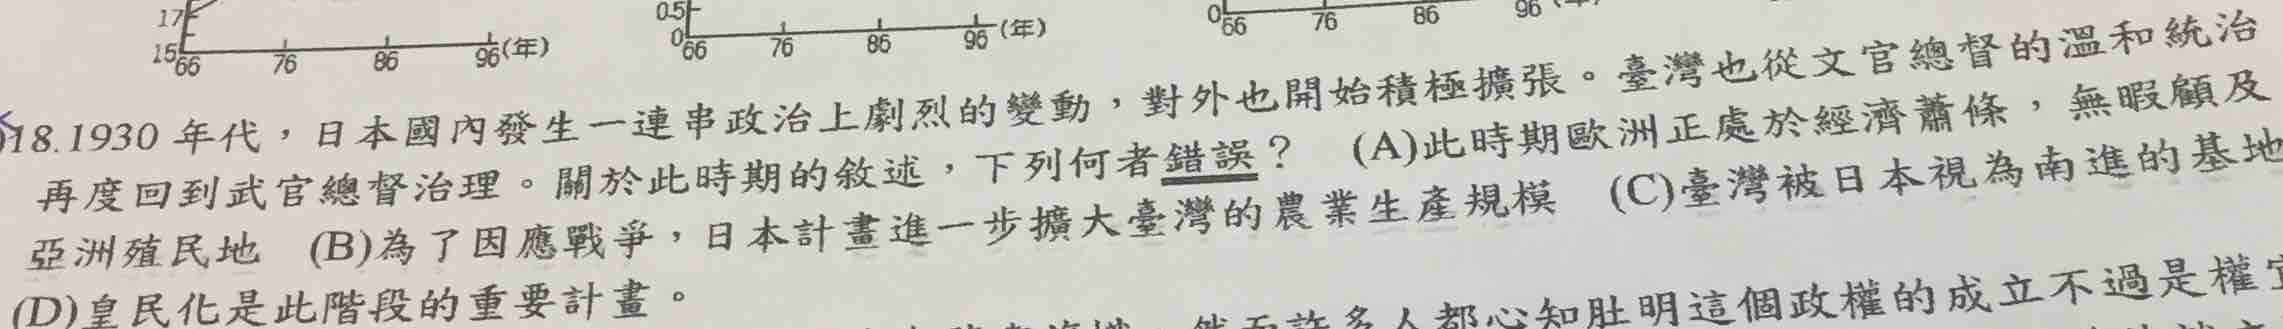 17
15 66 76 86 96(年)
0.5
0 66 76 86 96 (年)
0 66 76 86 96
18.1930 年代，日本國內發生一連串政治上劇烈的變動，對外也開始積極擴張。臺灣也從文官總督的溫和統治
再度回到武官總督治理。關於此時期的敘述，下列何者錯誤？ (A)此時期歐洲正處於經濟蕭條，無暇顧及
亞洲殖民地 (B)為了因應戰爭，日本計畫進一步擴大臺灣的農業生產規模 (C)臺灣被日本視為南進的基地
(D)皇民化是此階段的重要計畫。
然而許多人都心知肚明這個政權的成立不過是權